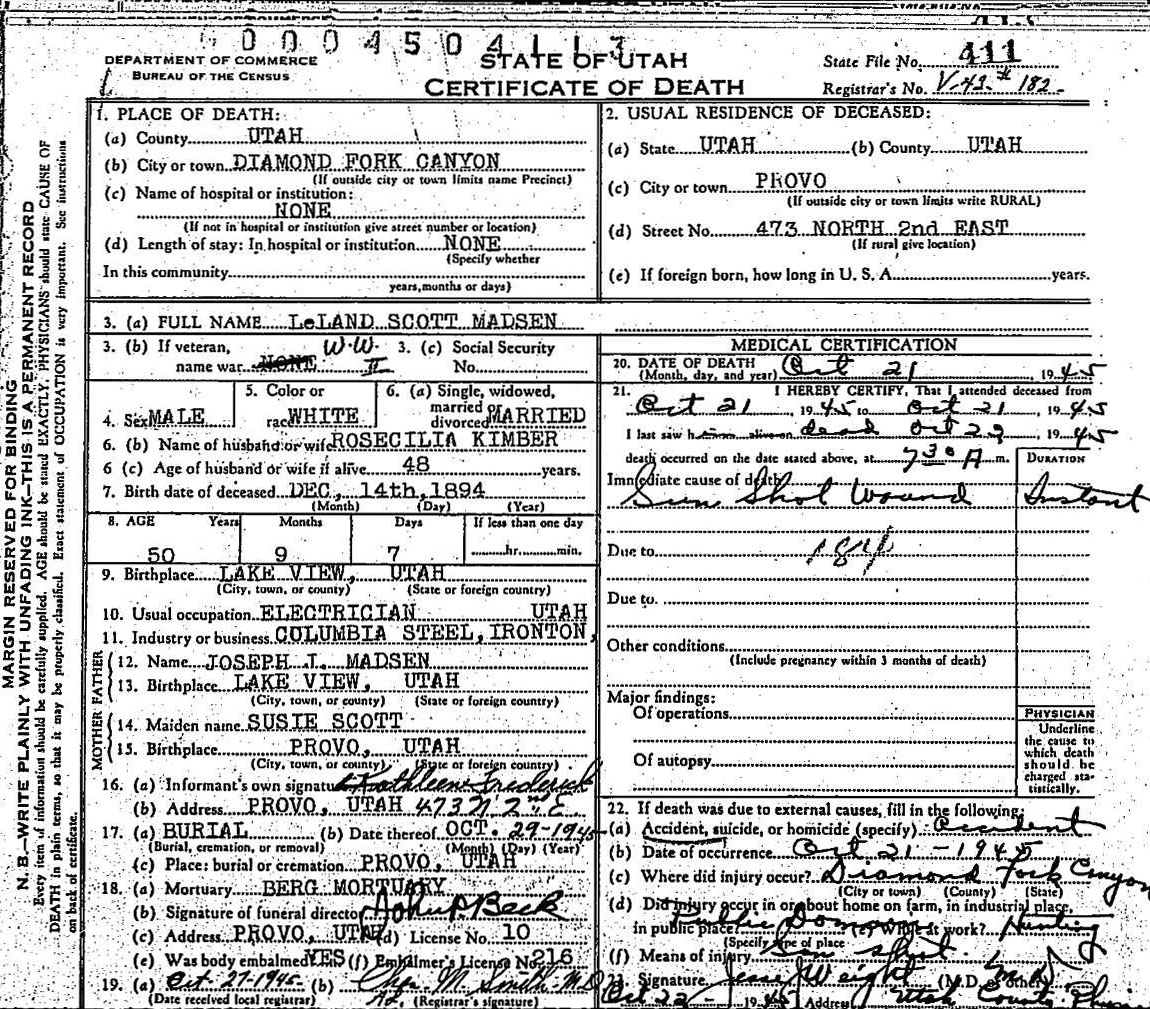 0004504113
DEPARTMENT OF COMMERCE
BUREAU OF THE CENSUS
STATE OF UTAH
CERTIFICATE OF DEATH
State File No. 411
Registrar's No. V-43-# 182-
MARGIN RESERVED FOR BINDING
N. B.—WRITE PLAINLY WITH UNFADING INK—THIS IS A PERMANENT RECORD
Every item of information should be carefully supplied. AGE should be stated EXACTLY. PHYSICIANS should state CAUSE OF
DEATH in plain terms, so that it may be properly classified. Exact statement of OCCUPATION is very important. See instructions
on back of certificate.
1. PLACE OF DEATH:
(a) County UTAH
(b) City or town DIAMOND FORK CANYON
(If outside city or town limits name Precinct)
(c) Name of hospital or institution:
NONE
(If not in hospital or institution give street number or location)
(d) Length of stay: In hospital or institution NONE
(Specify whether
In this community
years, months or days)
2. USUAL RESIDENCE OF DECEASED:
(a) State UTAH (b) County UTAH
(c) City or town PROVO
(If outside city or town limits write RURAL)
(d) Street No. 473 NORTH 2nd EAST
(If rural give location)
(e) If foreign born, how long in U. S. A. years.
3. (a) FULL NAME LeLAND SCOTT MADSEN
3. (b) If veteran, W.W. 3. (c) Social Security
name war NONE II No.
4. Sex MALE
5. Color or
race WHITE
6. (a) Single, widowed,
married
divorced MARRIED
6. (b) Name of husband or wife ROSECILIA KIMBER
6 (c) Age of husband or wife if alive 48 years.
7. Birth date of deceased DEC, 14th, 1894
(Month) (Day) (Year)
8. AGE Years Months Days If less than one day
50 9 7 hr. min.
9. Birthplace LAKE VIEW, UTAH
(City, town, or county) (State or foreign country)
10. Usual occupation ELECTRICIAN UTAH
11. Industry or business COLUMBIA STEEL, IRONTON,
FATHER
12. Name JOSEPH I. MADSEN
13. Birthplace LAKE VIEW, UTAH
(City, town, or county) (State or foreign country)
MOTHER
14. Maiden name SUSIE SCOTT
15. Birthplace PROVO, UTAH
(City, town, or county) (State or foreign country)
16. (a) Informant's own signature Kathleen Frederick
(b) Address PROVO, UTAH 473 N 2nd E
17. (a) BURIAL (b) Date thereof OCT. 29-1945
(Burial, cremation, or removal) (Month) (Day) (Year)
(c) Place: burial or cremation PROVO, UTAH
18. (a) Mortuary BERG MORTUARY
(b) Signature of funeral director
(c) Address PROVO, UTAH (d) License No. 10
(e) Was body embalmed YES (f) Embalmer's License No. 216
19. (a) Oct-27-1945- (b) M. Smith M.D
(Date received local registrar) (Registrar's signature)
MEDICAL CERTIFICATION
20. DATE OF DEATH Oct 21, 1945
(Month, day, and year)
21. I HEREBY CERTIFY, That I attended deceased from
Oct 21, 1945 to Oct 21, 1945
I last saw him alive on dead Oct 22, 1945
death occurred on the date stated above, at 7 30 A m.
DURATION
Immediate cause of death
Gun Shot Wound Instant
Due to
Due to
Other conditions
(Include pregnancy within 3 months of death)
Major findings:
Of operations
Of autopsy
PHYSICIAN
Underline
the cause to
which death
should be
charged sta-
tistically.
22. If death was due to external causes, fill in the following:
(a) Accident, suicide, or homicide (specify) Accident
(b) Date of occurrence Oct 21-1945
(c) Where did injury occur? Diamond Fork Canyon
(City or town) (County) (State)
(d) Did injury occur in or about home on farm, in industrial place,
in public place? Public Domain (e) While at work? Hunting
(Specify type of place
(f) Means of injury Gun shot
23. Signature Jesse Weight (M.D. or other) M.D
Oct 22- 1945 Address Utah County